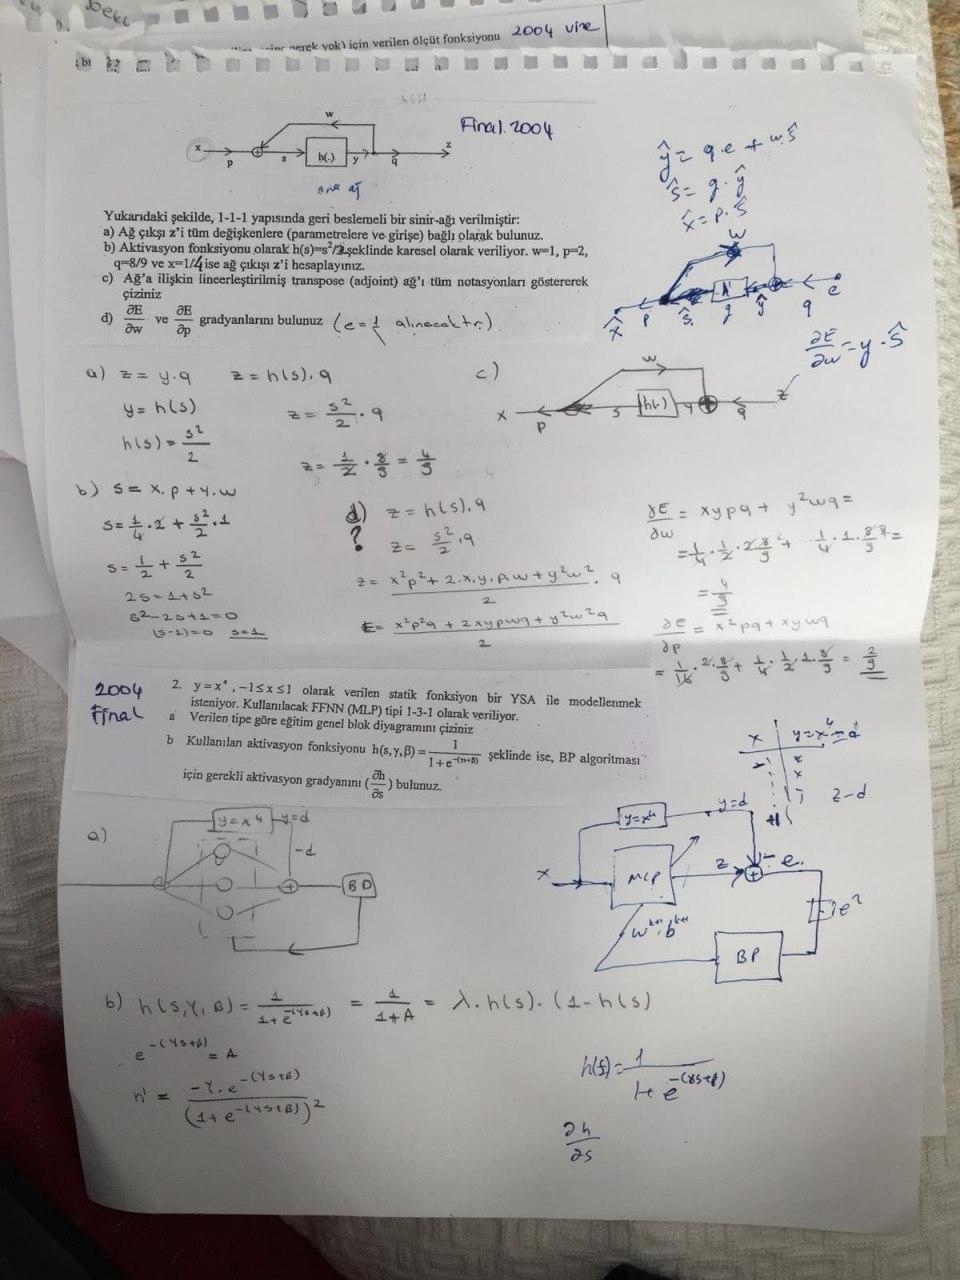 için verilen ölçüt fonksiyonu 2004 vize
Final 2004
w
x p s h(.) y q z
ana ağ
Yukarıdaki şekilde, 1-1-1 yapısında geri beslemeli bir sinir-ağı verilmiştir:
a) Ağ çıkşı z'i tüm değişkenlere (parametrelere ve girişe) bağlı olarak bulunuz.
b) Aktivasyon fonksiyonu olarak h(s)=s²/2 şeklinde karesel olarak veriliyor. w=1, p=2,
q=8/9 ve x=1/4 ise ağ çıkışı z'i hesaplayınız.
c) Ağ'a ilişkin lineerleştirilmiş transpose (adjoint) ağ'ı tüm notasyonları göstererek
çiziniz
d) ∂E/∂w ve ∂E/∂p gradyanlarını bulunuz (e=1/2 alınacaktır)
ŷ = q.e + w.ŝ
ŝ = g.ŷ
x̂ = p.ŝ
w
x̂ p ŝ g ŷ q e
∂E/∂w = y.ŝ
a) z = y.q z = h(s).q
y = h(s)
z = s²/2 . q
h(s) = s²/2
z = 1/2 . 8/9 = 4/9
c)
w
x p s h(.) y q z
b) s = x.p + y.w
s = 1/4 . 2 + s²/2 . 1
s = 1/2 + s²/2
2s = 1+s²
s²-2s+1=0
(s-1)=0 s=1
d) z = h(s).q
?
z = s²/2 . q
z = x²p² + 2.x.y.p.w + y²w² / 2 . q
E = x²p²q + 2xypwq + y²w²q / 2
∂E/∂w = xypq + y²wq =
= 1/4 . 1/2 . 2 . 8/9 + 1/4 . 1 . 8/9 =
= 4/9
∂E/∂p = x²pq + xywq
= 1/16 . 2 . 8/9 + 1/4 . 1/2 . 1 . 8/9 = 2/9
2004
Final
2. y=x⁴, -1≤x≤1 olarak verilen statik fonksiyon bir YSA ile modellenmek
isteniyor. Kullanılacak FFNN (MLP) tipi 1-3-1 olarak veriliyor.
a Verilen tipe göre eğitim genel blok diyagramını çiziniz
b Kullanılan aktivasyon fonksiyonu h(s,γ,β) = 1/(1+e^-(γs+β)) şeklinde ise, BP algoritması
için gerekli aktivasyon gradyanını (∂h/∂s) bulunuz.
x y=x⁴=d
z-d
a)
y=x⁴ y=d
-d
BP
y=x⁴ y=d
x MLP z - e
w^k+1, b^k+1
e²
BP
b) h(s,γ,β) = 1/(1+e^-(γs+β)) = 1/(1+A) = λ.h(s).(1-h(s)
e^-(γs+β) = A
h' = -γ.e^-(γs+β) / (1+e^-(γs+β))²
h(s) = 1/(1+e^-(γs+β))
∂h/∂s